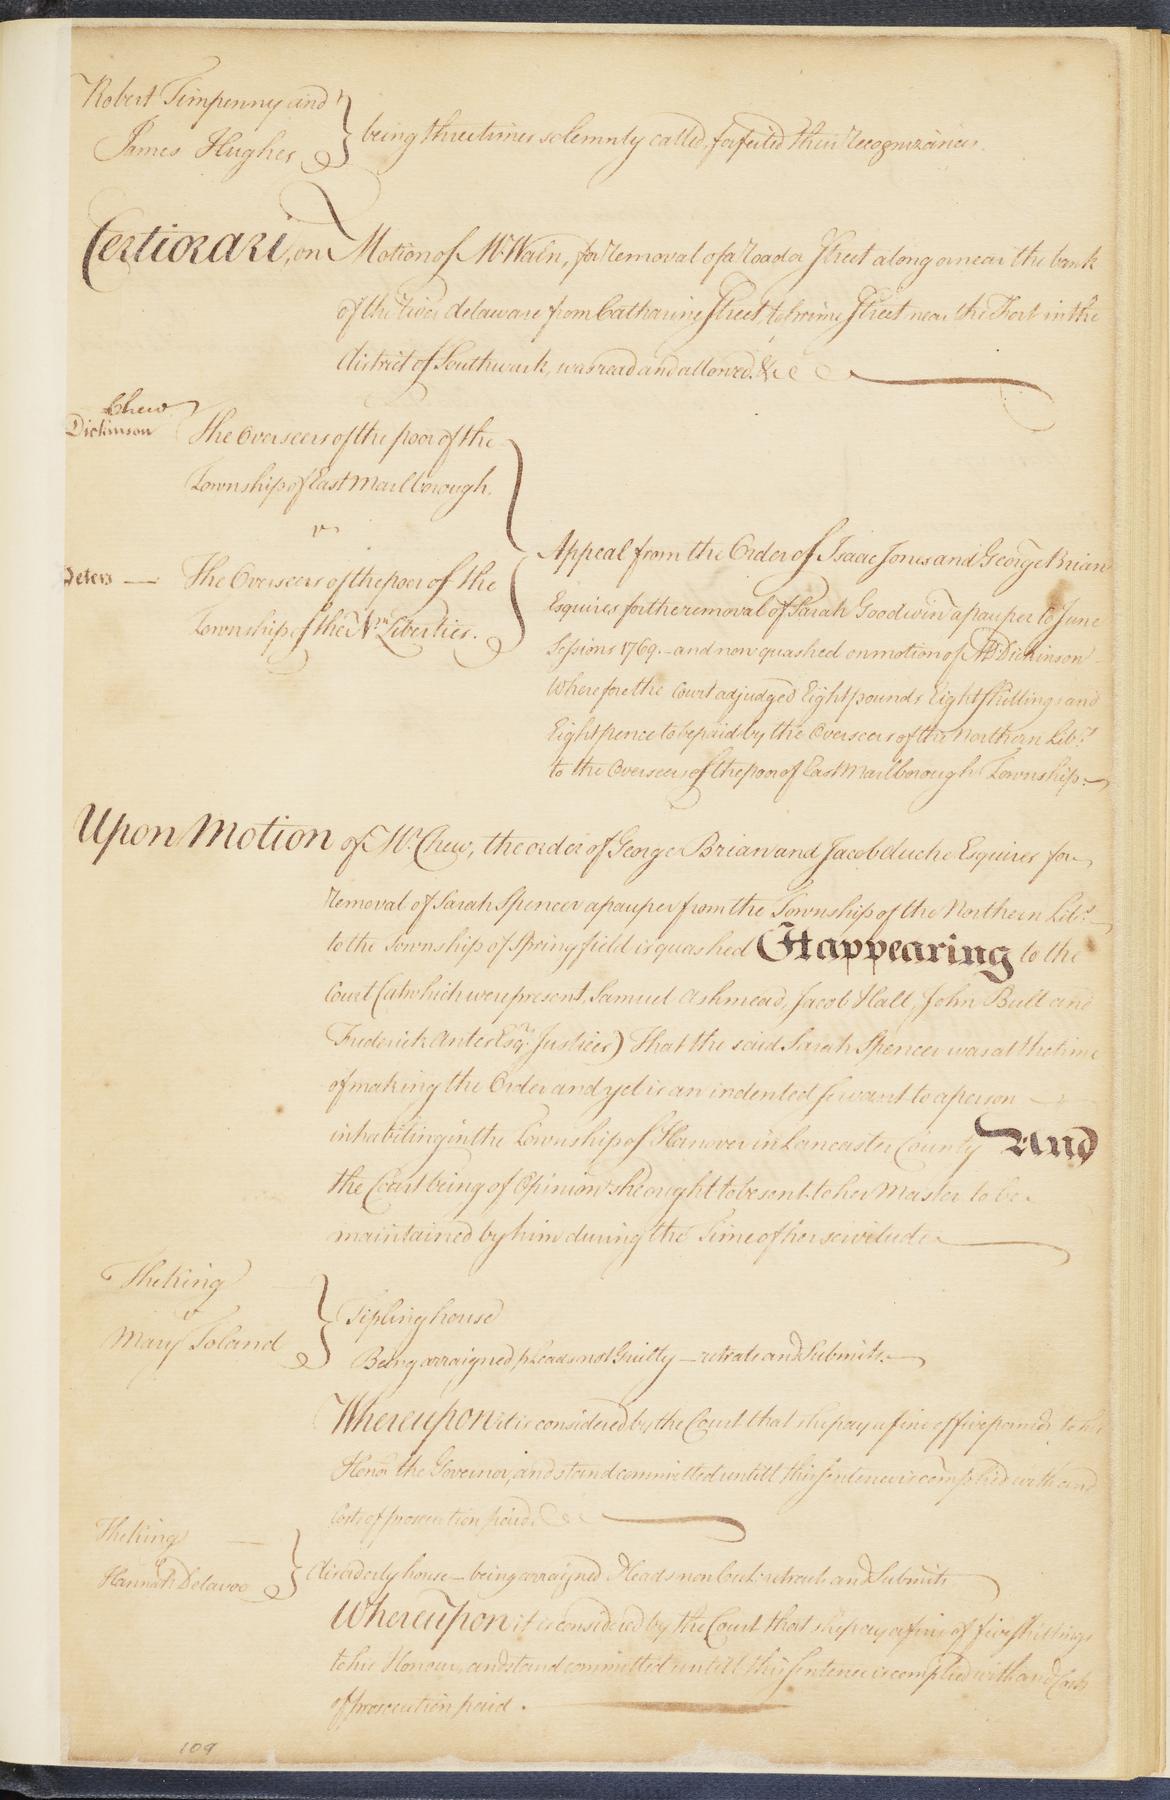 Robert Timpenny and
James Hughes
being three times solemnly called, forfeited their Recognizances.
Certiorari, on Motion of Mr. Waln, for removal of a road or Street along or near the bank
of the river delaware from Catharine Street, to prime Street near the Fort in the
district of Southwark, was read and allowed. &c
Chew
Dickinson
The Overseers of the poor of the
Township of East Marlborough.
v
Peters —
The Overseers of the poor of the
Township of the Nn. Liberties.
Appeal from the Order of Isaac Jones and George Brian
Esquires for the removal of Sarah Goodwin a pauper to June
Sessions 1769. - and now quashed on motion of Mr. Dickinson
Wherefore the Court adjudged Eight pounds Eight Shillings and
Eight pence to be paid by the Overseers of the Northern Libs.
to the Overseers of the poor of East Marlborough Township.
Upon Motion of Mr. Chew, the order of George Brian and Jacob duche Esquires for
removal of Sarah Spencer a pauper from the Township of the Northern Libs.
to the Township of Springfield is quashed It appearing to the
Court (at which were present, Samuel Ashmead, Jacob Hall, John Bull and
Frederick Antes Esqrs. Justices) That the said Sarah Spencer was at the time
of making the Order and yet is an indented servant to a person
inhabiting in the Township of Hanover in Lancaster County And
the Court being of Opinion she ought to be sent to her Master to be
maintained by him during the Time of her servitude
The King
v
Mary Toland
Tipling house
Being arraigned pleads not Guilty — retrats and Submits.
Whereupon it is considered by the Court that she pay a fine of five pounds to his
Honor the Governor, and stand committed untill this sentence is complied with and
Costs of prosecution paid. &c
The King
v
Hannah Delavoe
disorderly house — being arraigned Pleads non Cul: retrats and Submits
Whereupon it is considered by the Court that she pay a fine of five Shillings
to his Honour, and stand committed untill this sentence is complied with and Costs
of prosecution paid.
109